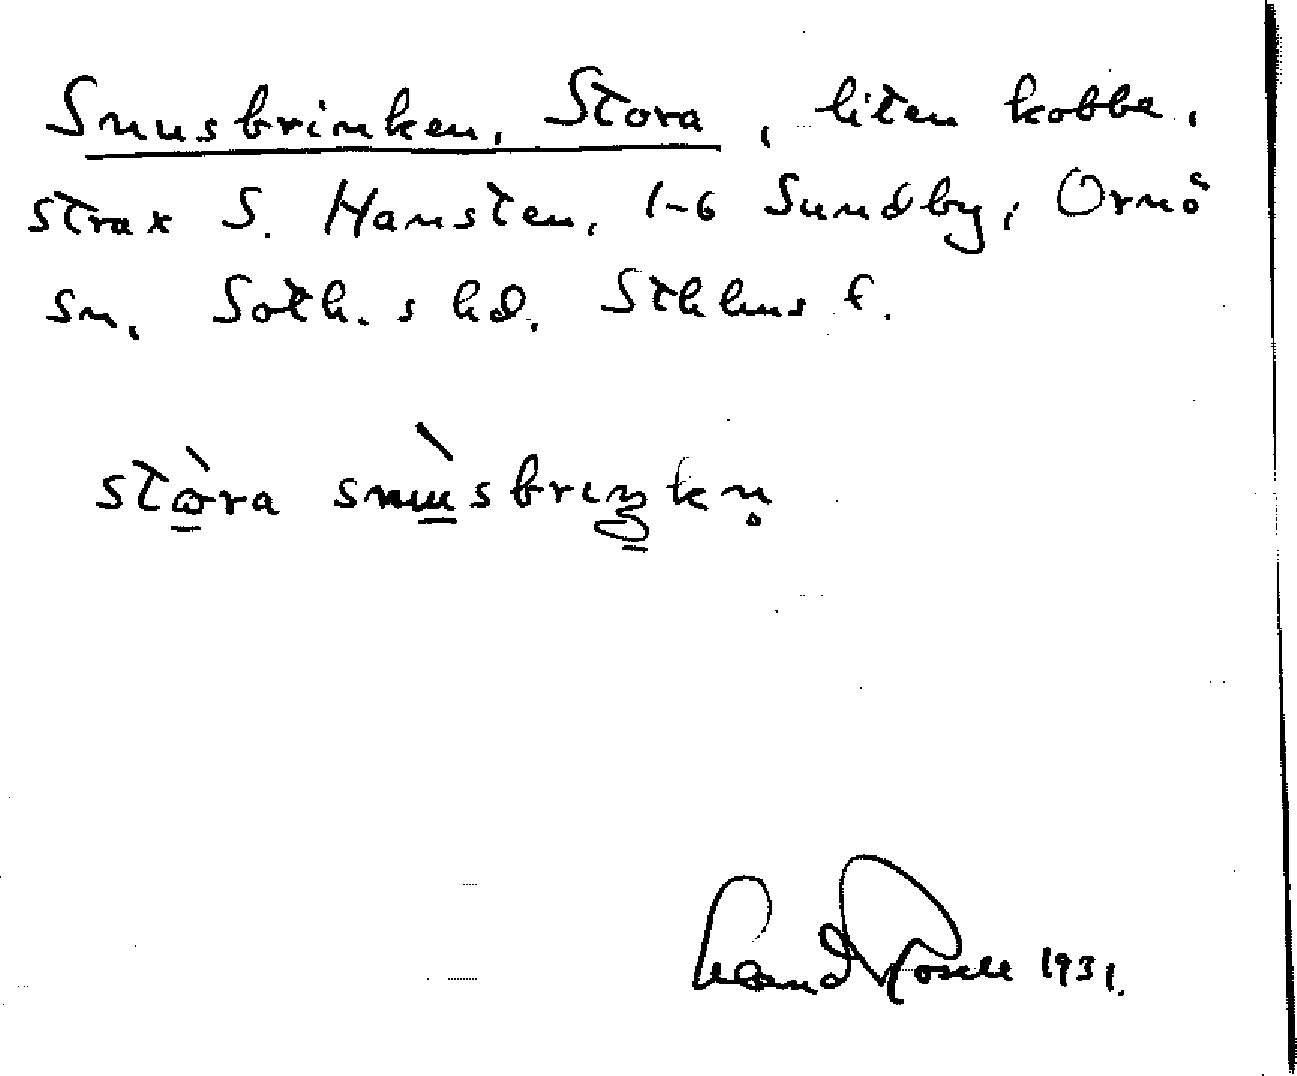 Snusbrinken, Stora, liten kobbe,
strax S. Hamsten, 1-6 Sundby, Ornö
sn, Soth.s hd. Sthlms l.
stɷ̀ra snùsbrıŋkn̥
1931.